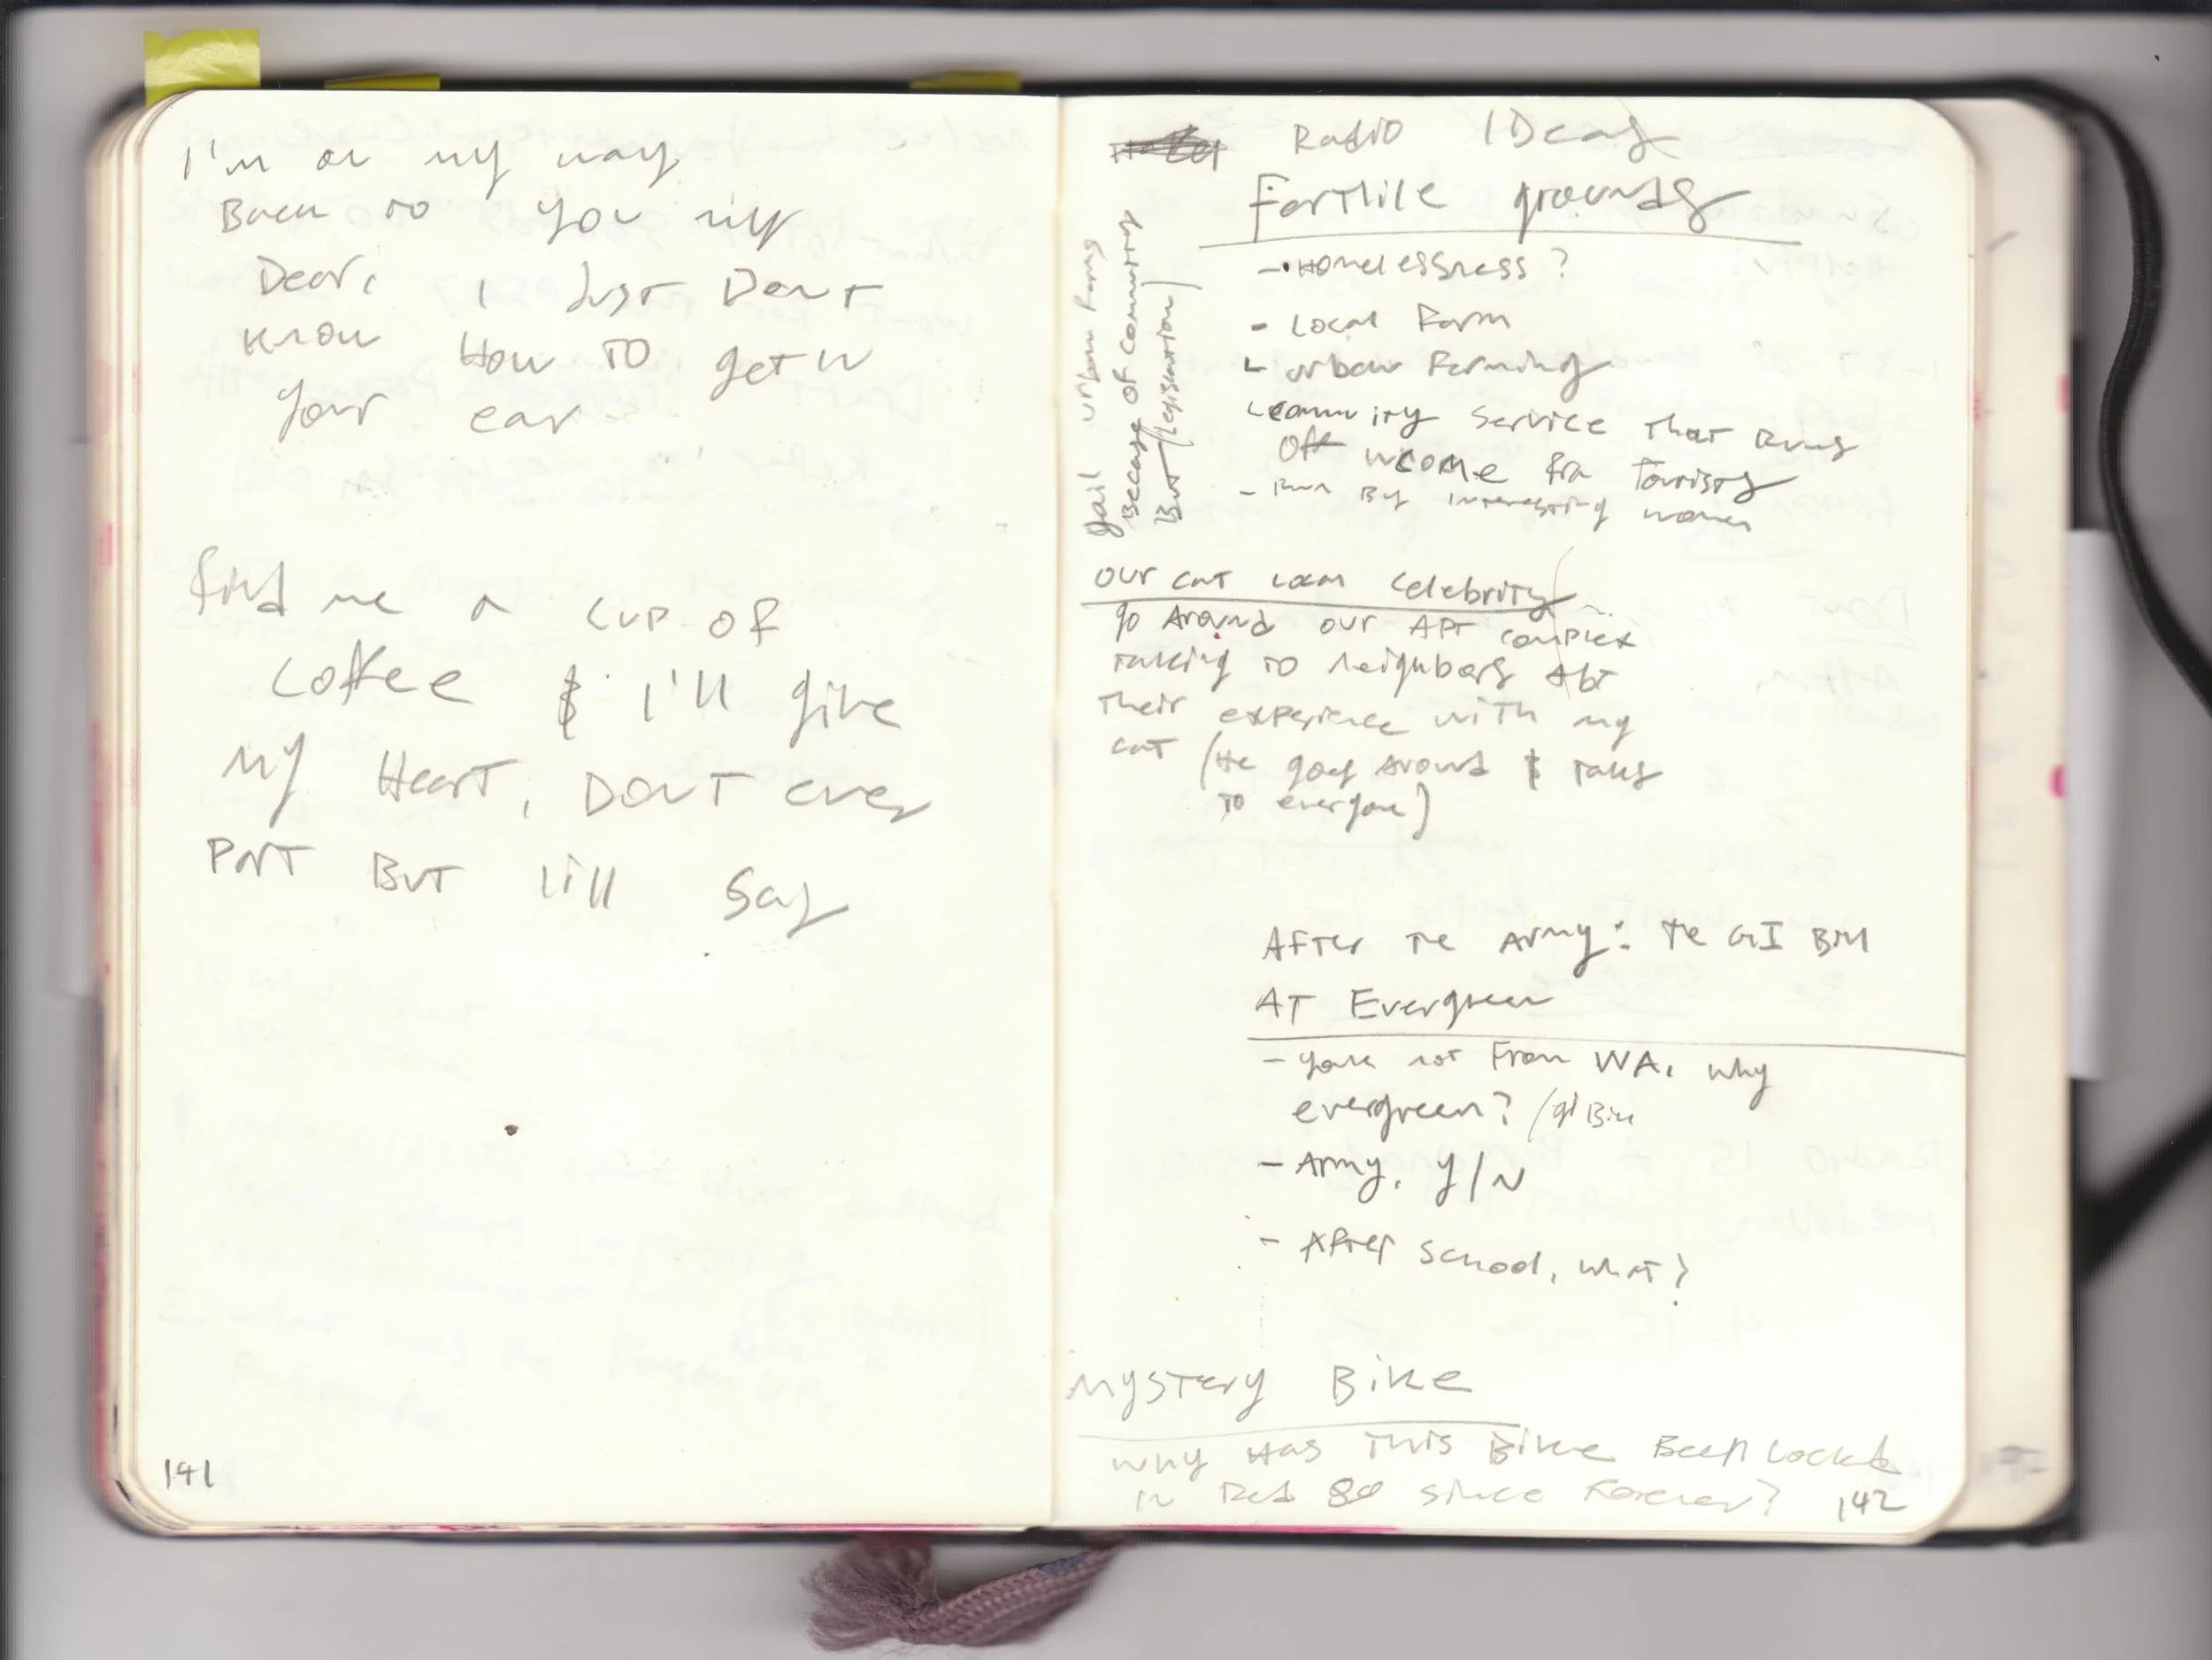 I'm on my way
Back to you my
Dear, I Just Dont
Know How TO get in
your ear
find me a cup of
coffee & I'll give
my Heart, DONT ever
PArT BuT I'ill Say
141
Radio IDeas
Fertlile grounds
- Homelessness?
- Local Farm
- urban Farming
- community service That Runs
Off income frm Tourists
- Run By interesting women
Jail urban farms
Because of community
But (legislation)
our cat local celebrity
go Around our APT complex
Talking to neighbors Abt
Their experience with my
cat (He goes around & Talks
To everyone)
After The Army: The GI Bill
AT Evergreen
- your not From WA, why
evergreen? (gi Bill
- Army, y/N
- After School, what?
Mystery Bike
Why Has This Bike Been Locked
in Red 80 since Forever?
142